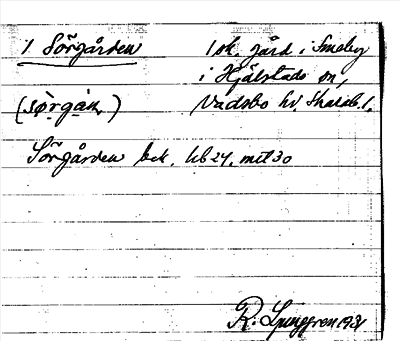 1 Sörgården 1 sk. gård i Smeby
i Hjälstads sn,
(sö̀rgàṇ) Vadsbo hd. Skarab. l.
Sörgården bek. kb 24. mtl 30
R. Ljunggren 1931